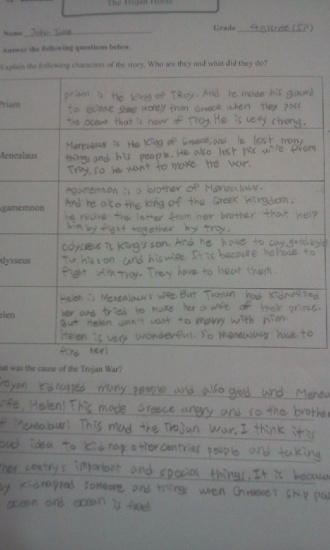 The Trojan Horse
Name John Sina Grade
Answer the following questions below.
Explain the following characters of the story. Who are they and what did they do?
Priam
Priam is the king of Troy. And he made his guard
to some money from Greece when they pass
the ocean that is near of Troy. He is very strong.
Menealaus
Menealaus is the king of Greece, and he lost many
things and his people. He also lost his wife from
Troy, so he want to make the war.
Agamemnon
Agamemnon is a brother of Menealaus.
And he also the king of the Greek kingdom.
he the letter from her brother that help
him by fight together by Troy.
Odysseus
Odysseus is kings son. And he have to say goodbye
to his son and his wife. It is because he have to
fight with Troy. They have to them.
Helen
Helen is Menealaus wife. But Trojan had kidnapped
her and tries to make her a wife of their prince.
But Helen don't want to marry with him.
Helen is very wonderful. So Menealaus have to
her!
What was the cause of the Trojan War?
Trojan kidnapes many people and also gold and
wife, Helen! This made Greece angry and so the brother
of Menealaus! This mad the Trojan War. I think it is
idea to kidnap other centries people and taking
centrys important and special things. It is because
kidnapped someone and things when ship
ocean and ocean is